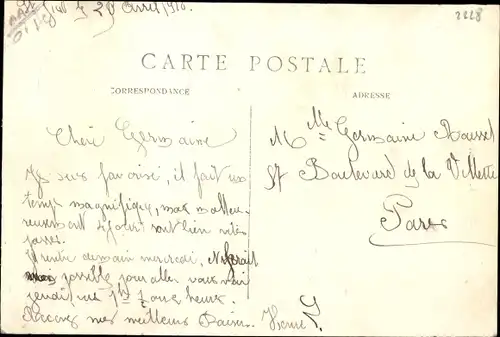 Avril 1910.
2228
CARTE POSTALE
CORRESPONDANCE
ADRESSE
Cheri Germaine
Je suis favorisé, il fait un
temps magnifique, mais malheu
reusement 4 jours sont bien vite
passés.
Je rentre demain mercredi,
possible pour aller vous voir
jeudi, vers onze heures.
Recevez mes meilleurs baisers. Henri
Mlle Germaine Roussel
57 Boulevard de la Villette
Paris